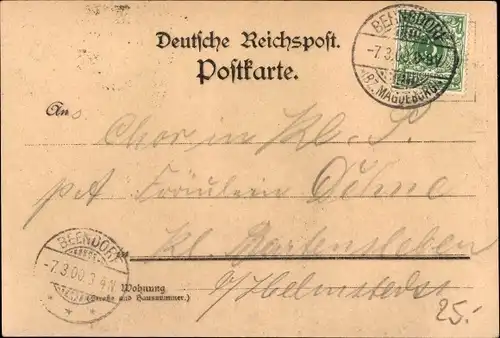 Deutsche Reichspost.
Postkarte.
BEENDORF
-7.3.00. 3-4N
(BZ. MAGDEBURG)
An
Chor in Kl. S
p. A. Fräulein Dühne
Kl. Bartensleben
b/Helmstedt
Wohnung
(Straße und Hausnummer.)
BEENDORF
-7.3.00. 3-4N
25.-